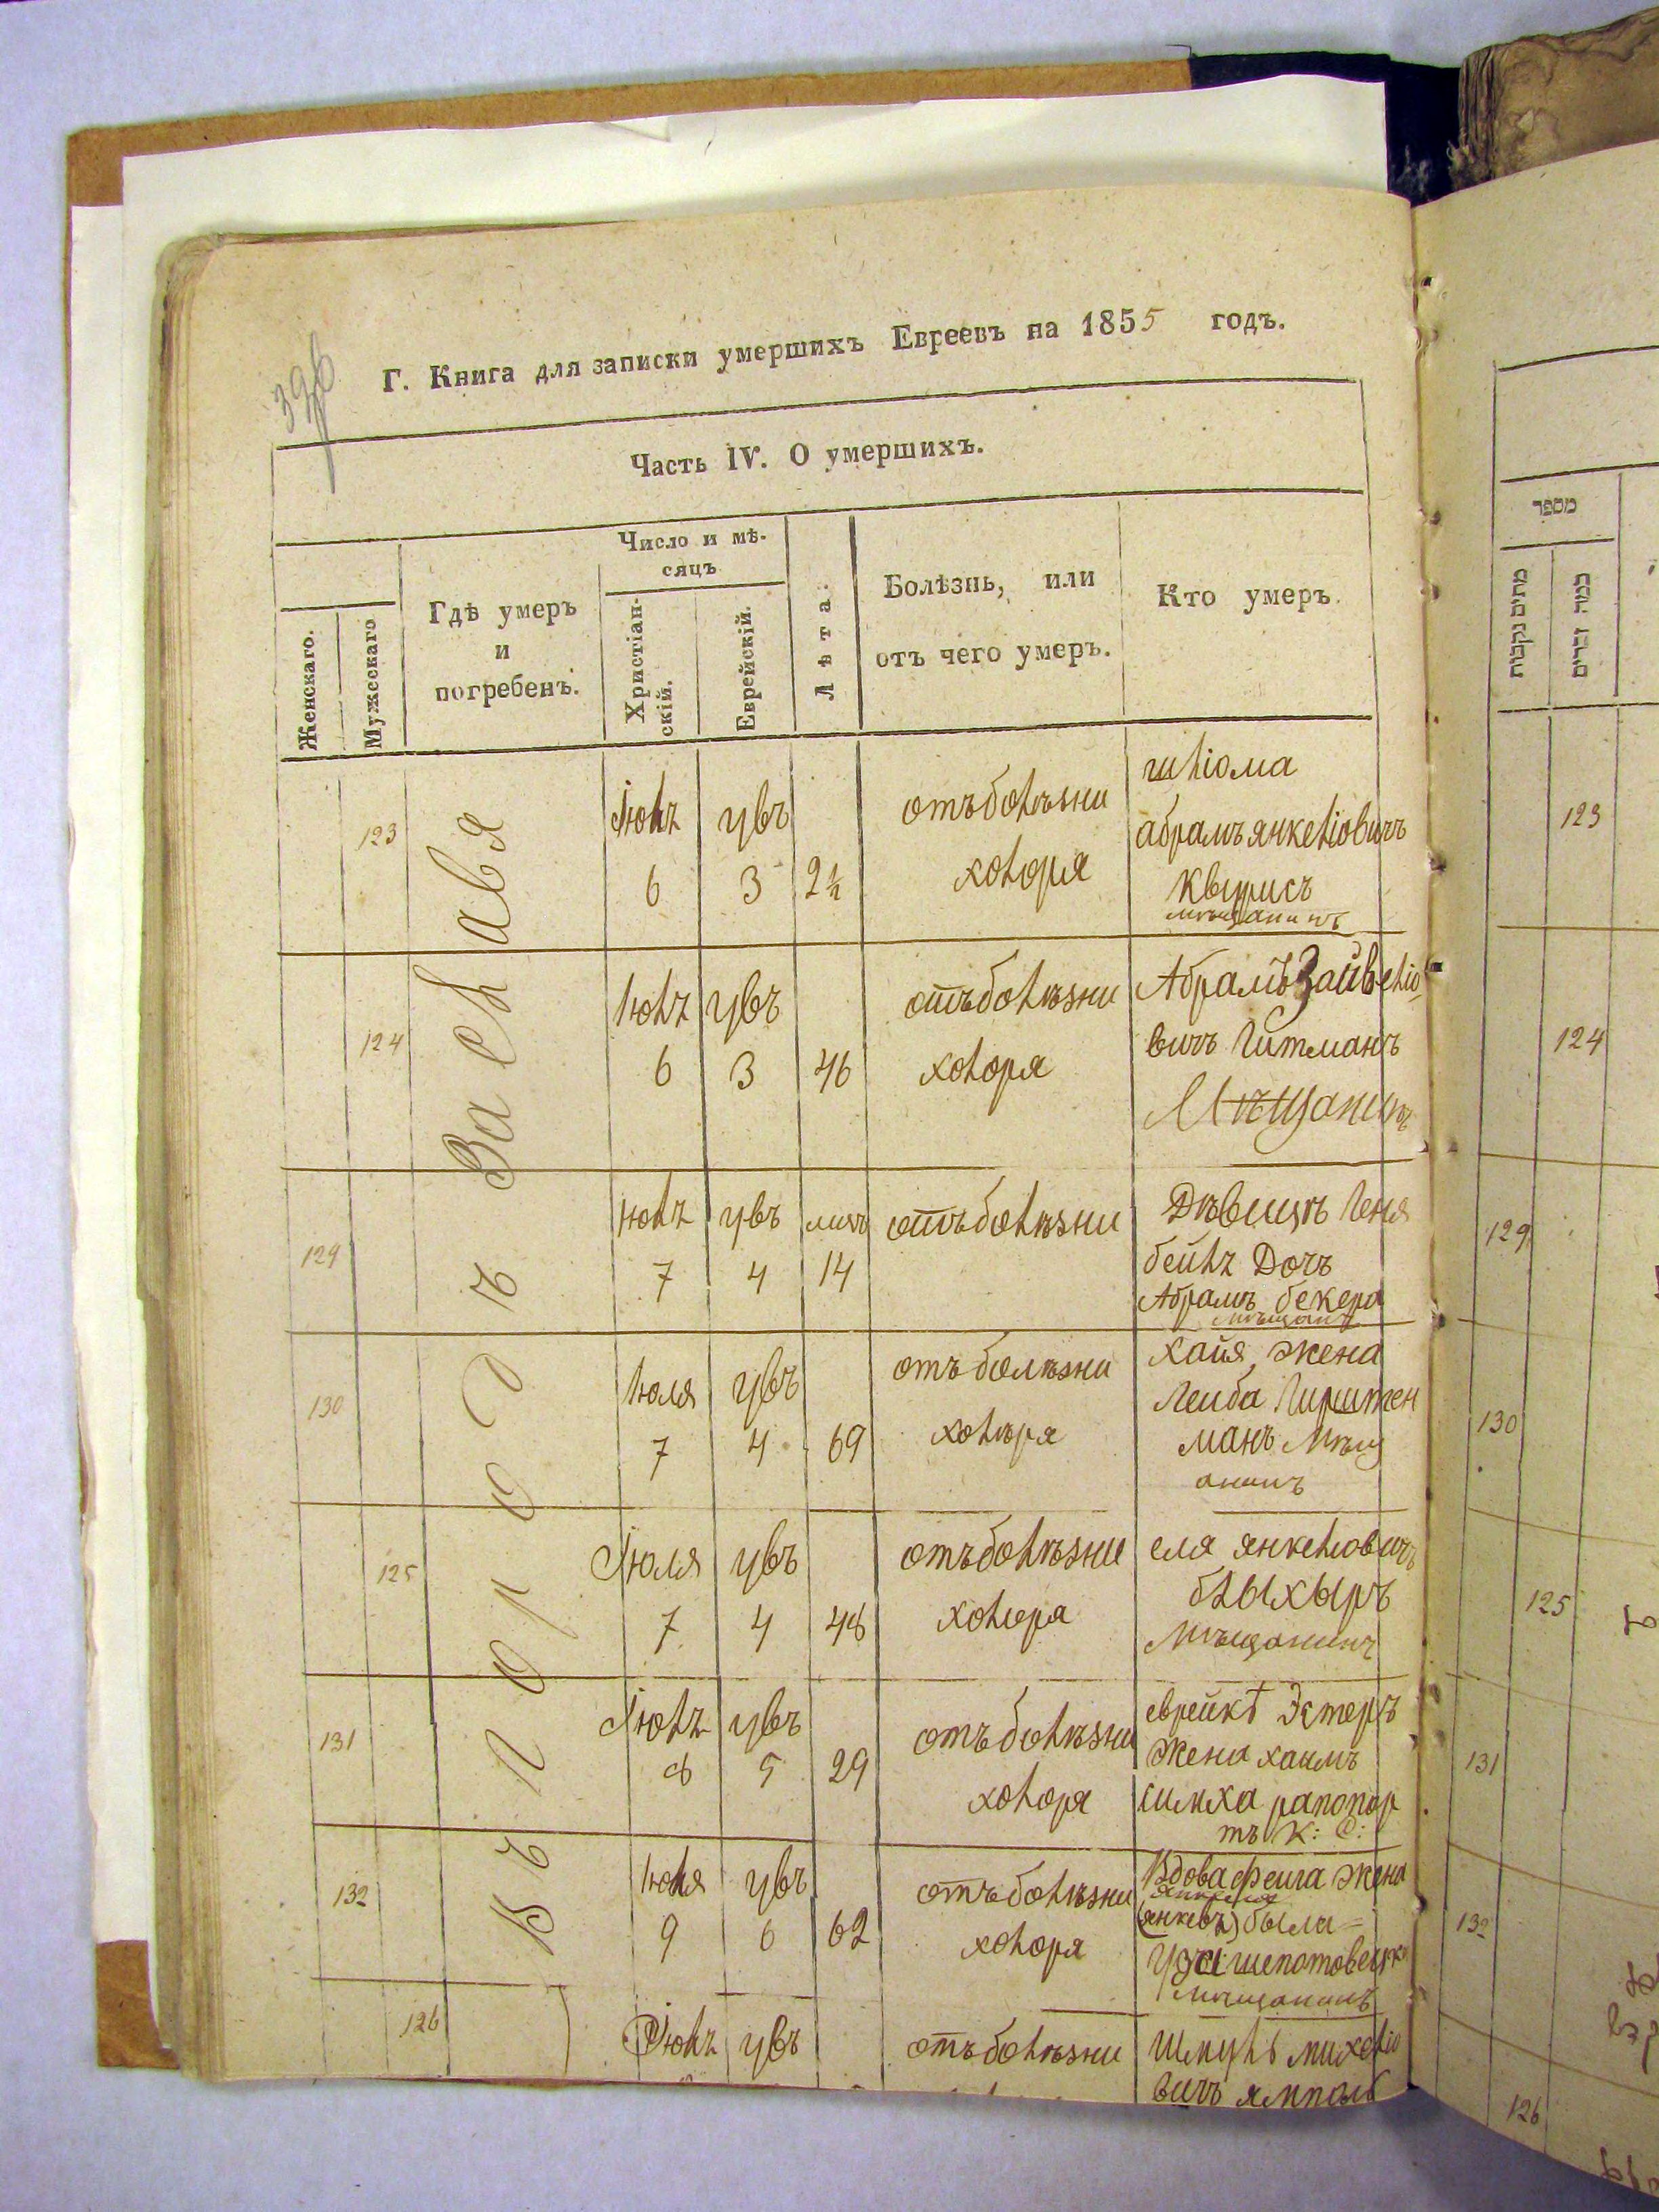 396
Г. Книга для записки умершихъ Евреевъ на 1855 годъ.
Часть IV. О умершихъ.
Женскаго.
Мужескаго
Гдѣ умеръ
и
погребенъ.
Число и мѣ-
сяцъ
Христіан-
скій.
Еврейскій.
Лѣта.
Болѣзнь, или
отъ чего умеръ.
Кто умеръ.
Въ городѣ Васелькавя
123
Июль
6
увъ
3
2½
отъ болѣзни
холоря
шліома
абрамъ янкеліовичъ
мѣщанинъ
124
Июль
6
увъ
3
46
отъ болѣзни
холоря
Абрамъ Зайвеліо
вичъ Гитманъ
Мѣщанинъ
129
Июль
7
увъ
4
14
отъ болѣзни
Дѣвицъ Геня
бейлъ Дочъ
Абрамъ бекера
мѣщанъ
130
Июля
7
увъ
4
69
отъ болѣзни
холѣря
хайя жена
Лейба Гирштен
манъ Мѣщ
анинъ
125
Июля
7
увъ
4
48
отъ болѣзни
холеря
еля янкеліовичъ
блыхыръ
Мѣщанинъ
131
Июль
8
увъ
5
29
отъ болѣзни
холоря
еврейкѣ Эстеръ
жена хаимъ
симха рапопор
тъ К: С:
132
Июля
9
увъ
6
62
отъ болѣзни
холоря
Вдова фейга жена
(янкевъ) была
шепотовецк
Мѣщанинъ
126
Июль
увъ
отъ болѣзни
Шмуль михеліо
вичъ ямполь
מספר
מתים נקבות
כמה זכרים
123
124
129
130
125
131
132
126